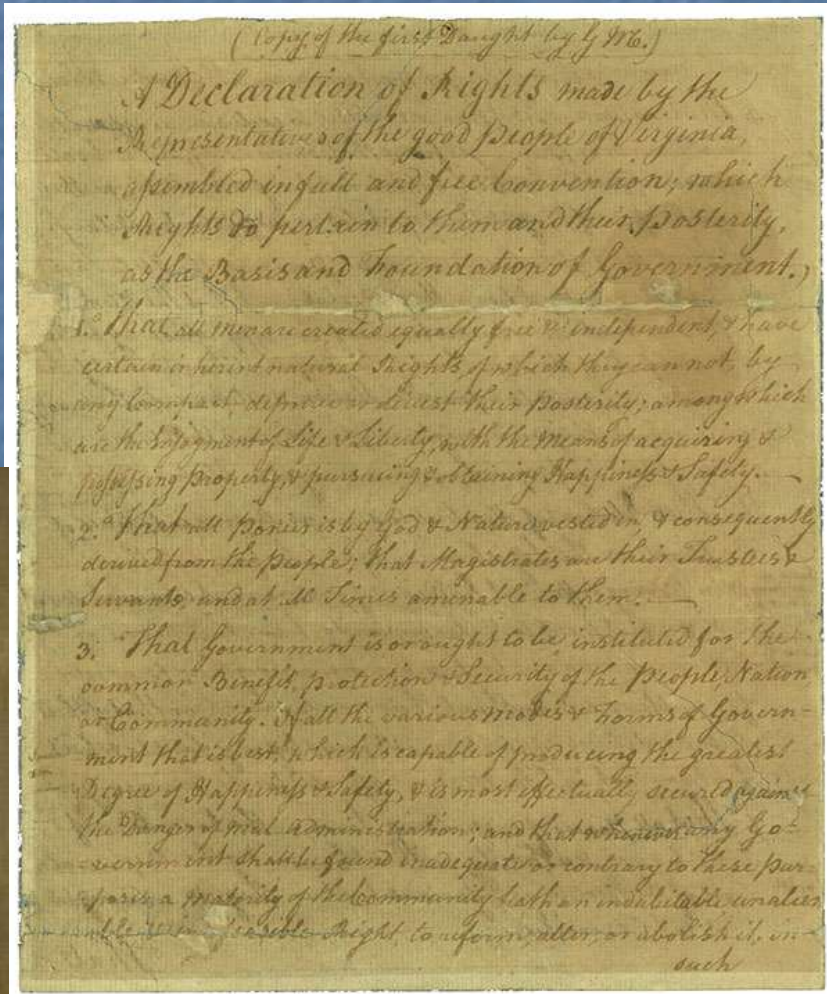 (Copy of the first Daught by G M.)
A Declaration of Rights made by the
Representatives of the good people of Virginia,
assembled in full and free Convention; which
Rights do pertain to them and their posterity,
as the Basis and Foundation of Government.
1. That all men are created equally free & independent, & have
certain inherent natural Rights, of which they cannot, by
any Compact, deprive or divest their Posterity; among which
are the Enjoyment of Life & Liberty, with the Means of acquiring &
possessing Property, & pursueing & obtaining Happiness & Safety.
2. That all Power is by God & Nature vested in, & consequently
derived from the People; that Magistrates are their Trustees &
Servants, and at all Times amenable to them.
3. That Government is or ought to be, instituted for the
common Benefit, protection & Security of the People, Nation
or Community. Of all the various Modes & Forms of Govern-
ment that is best, which is capable of producing the greatest
Degree of Happiness & Safety, & is most effectually secured against
the Danger of mal-administration; and that whenever any Go-
-vernment shall be found inadequate or contrary to these Pur-
poses, a majority of the Community hath an indubitable unalien
able Right, to reform, alter, or abolish it, in
such